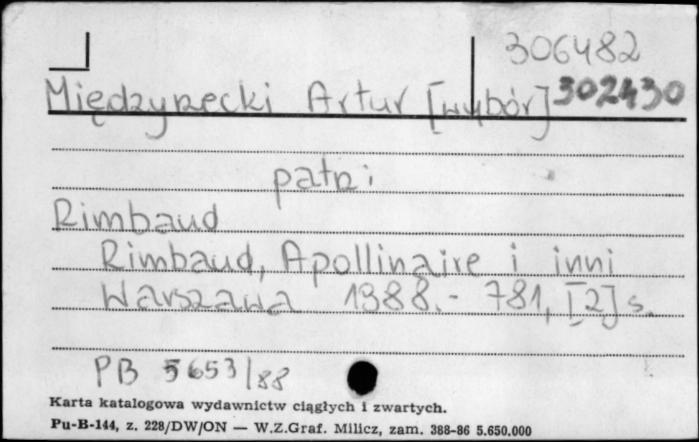 306482
Międzyrzecki Artur [wybór] 302430
patrz:
Rimbaud
Rimbaud, Apollinaire i inni
Warszawa 1988.- 781, [2] s.
PB 5653/88
Karta katalogowa wydawnictw ciągłych i zwartych.
Pu-B-144, z. 228/DW/ON — W.Z.Graf. Milicz, zam. 388-86 5.650.000